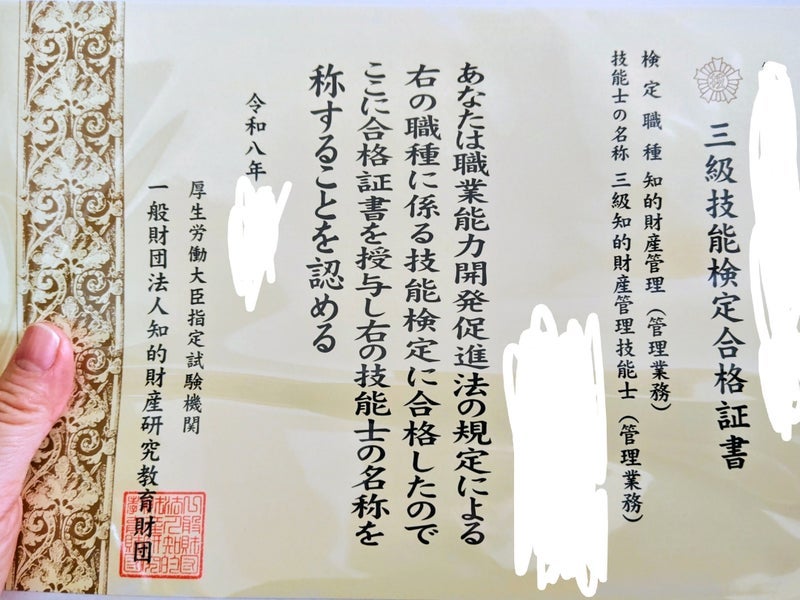 三級技能検定合格証書
検定職種 知的財産管理（管理業務）
技能士の名称 三級知的財産管理技能士（管理業務）
あなたは職業能力開発促進法の規定による
右の職種に係る技能検定に合格したので
ここに合格証書を授与し右の技能士の名称を
称することを認める
令和八年
厚生労働大臣指定試験機関
一般財団法人知的財産研究教育財団